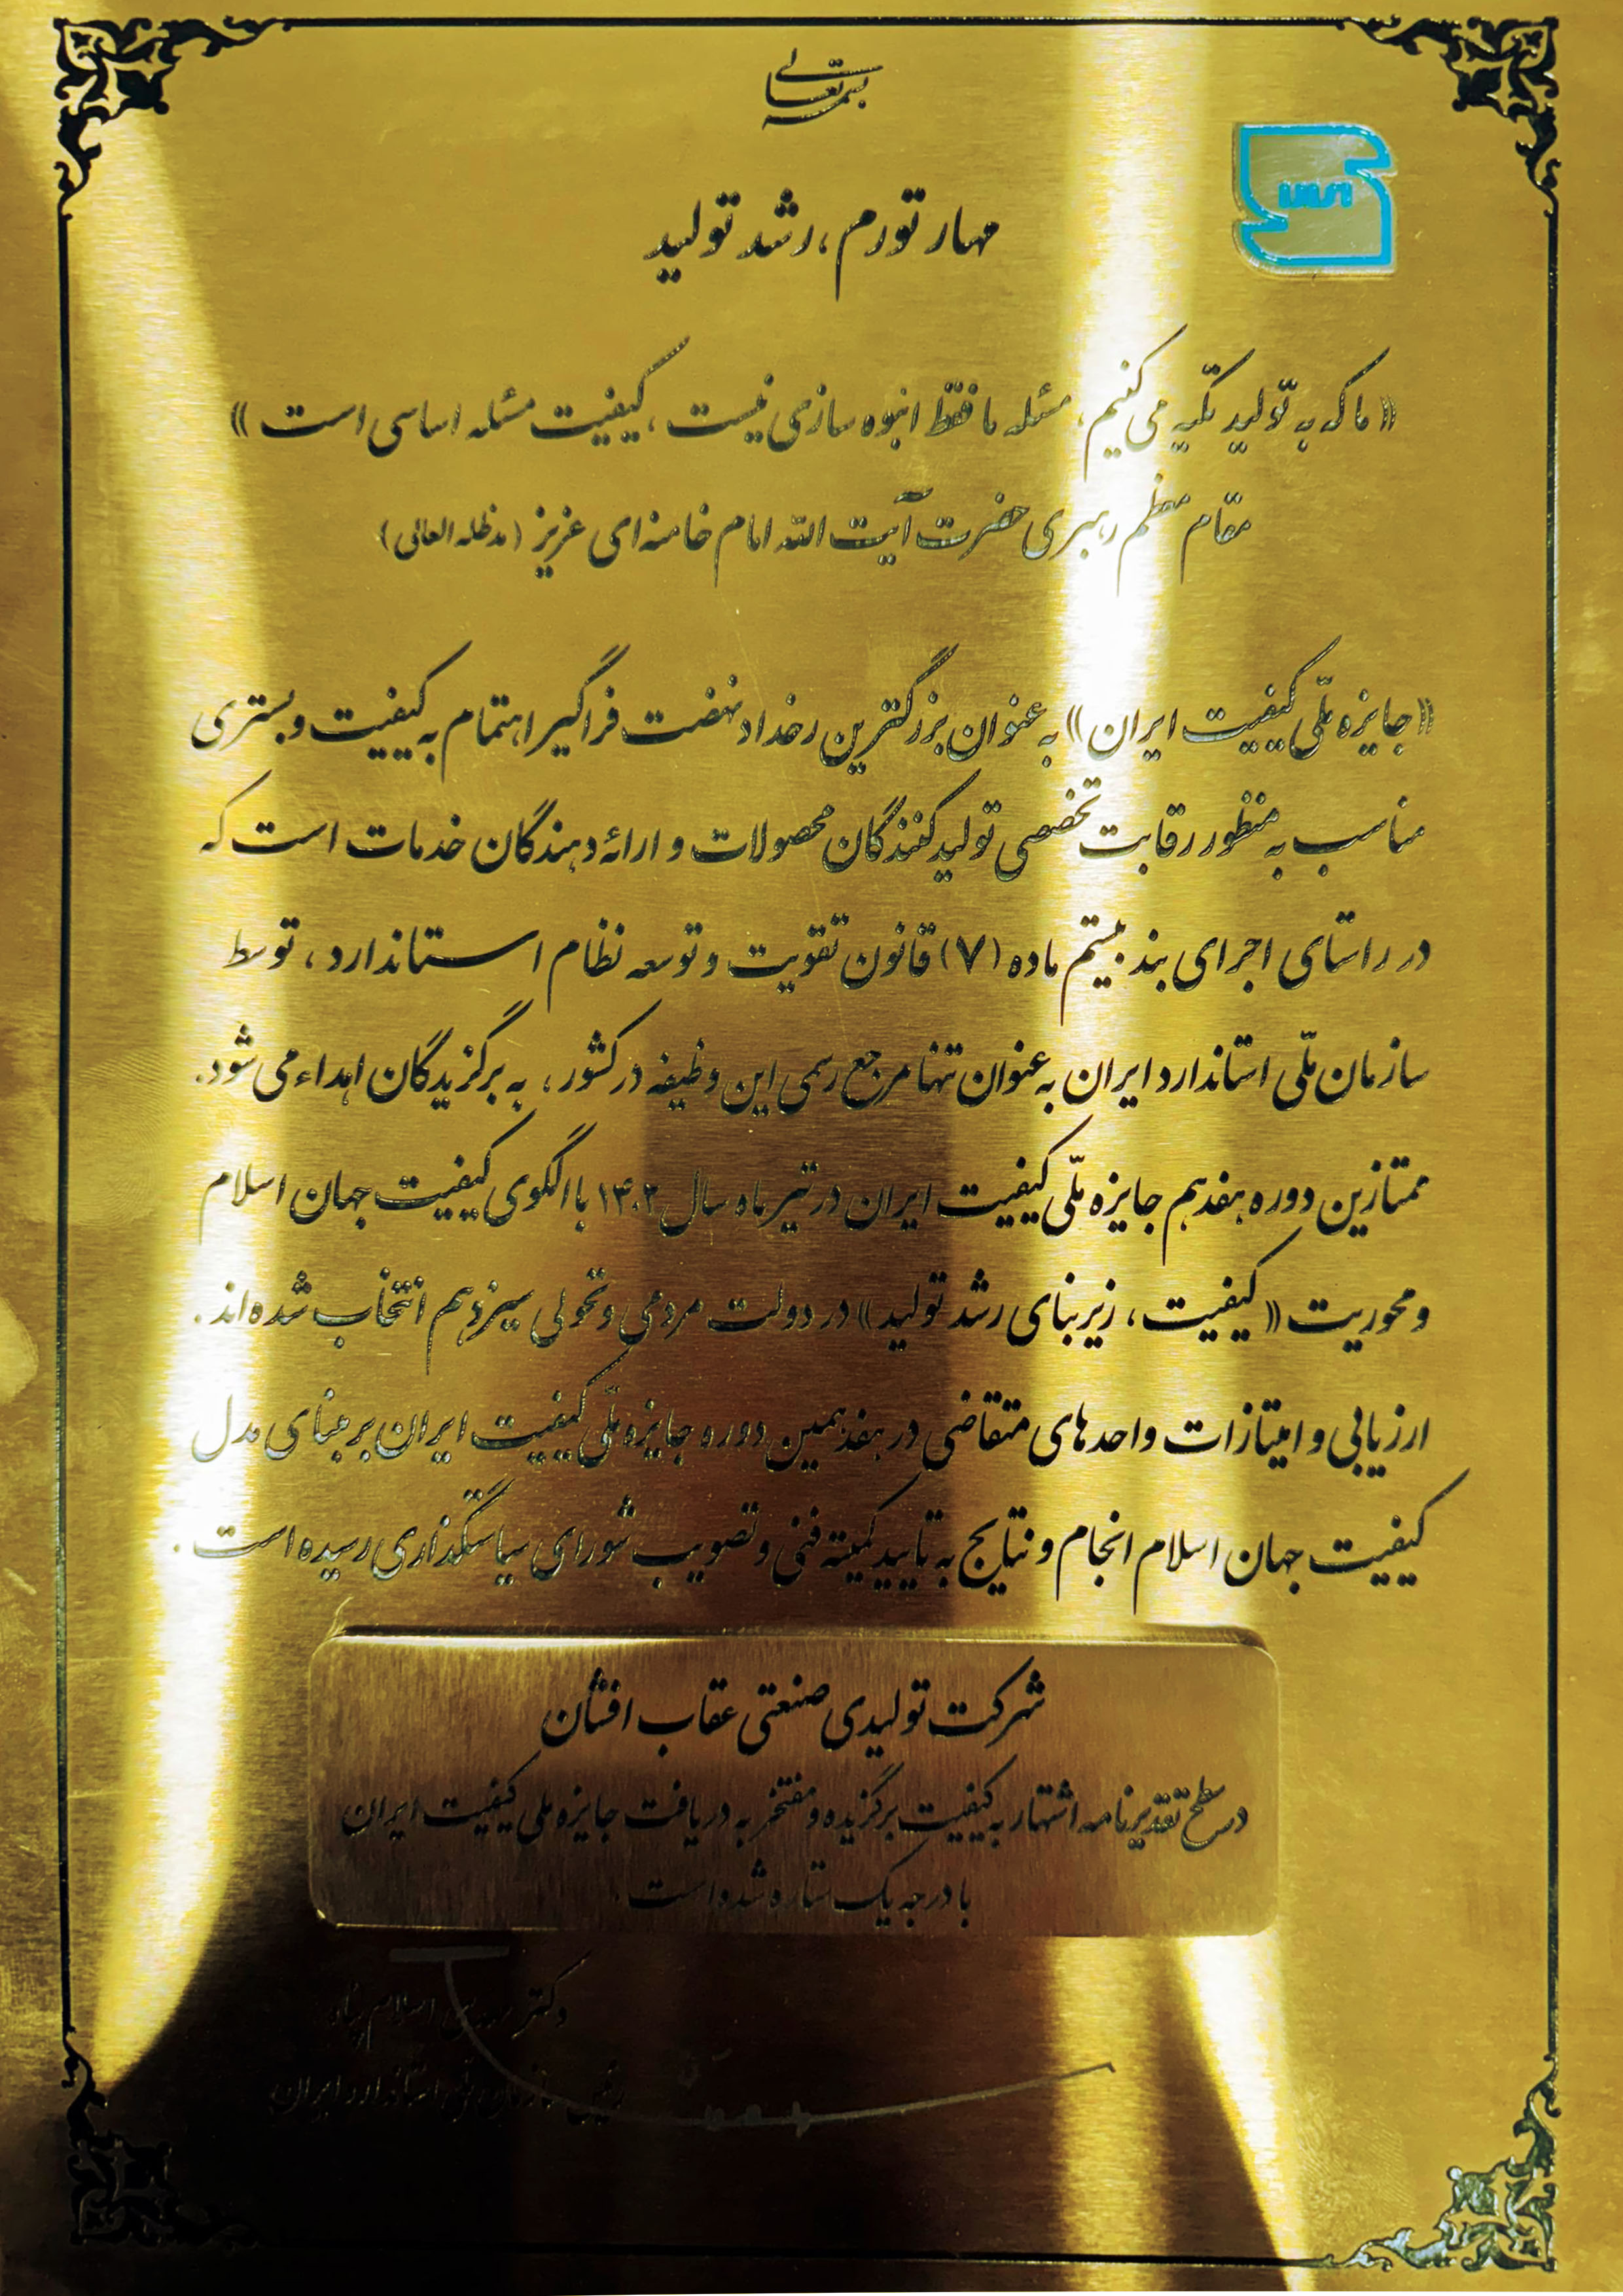 بسمه تعالی
مهار تورم، رشد تولید
«ما که به تولید تکیه می کنیم، مسئله ما فقط انبوه سازی نیست، کیفیت مسئله اساسی است»
مقام معظم رهبری حضرت آیت الله امام خامنه ای عزیز (مدظله العالی)
«جایزه ملّی کیفیت ایران» به عنوان بزرگترین رخداد نهضت فراگیر اهتمام به کیفیت و بستری
مناسب به منظور رقابت تخصصی تولیدکنندگان محصولات و ارائه دهندگان خدمات است که
در راستای اجرای بند بیستم ماده (۷) قانون تقویت و توسعه نظام استاندارد، توسط
سازمان ملّی استاندارد ایران به عنوان تنها مرجع رسمی این وظیفه در کشور، به برگزیدگان اهداء می شود.
ممتازین دوره هفدهم جایزه ملّی کیفیت ایران در تیر ماه سال ۱۴۰۲ با الگوی کیفیت جهان اسلام
و محوریت «کیفیت، زیربنای رشد تولید» در دولت مردمی و تحولی سیزدهم انتخاب شده اند.
ارزیابی و امتیازات واحدهای متقاضی در هفدهمین دوره جایزه ملّی کیفیت ایران بر مبنای مدل
کیفیت جهان اسلام انجام و نتایج به تایید کمیته فنی و تصویب شورای سیاستگذاری رسیده است.
شرکت تولیدی صنعتی عقاب افشان
در سطح تقدیرنامه اشتهار به کیفیت برگزیده و مفتخر به دریافت جایزه ملی کیفیت ایران
با درجه یک ستاره شده است.
دکتر مهدی اسلام پناه
رئیس سازمان ملّی استاندارد ایران